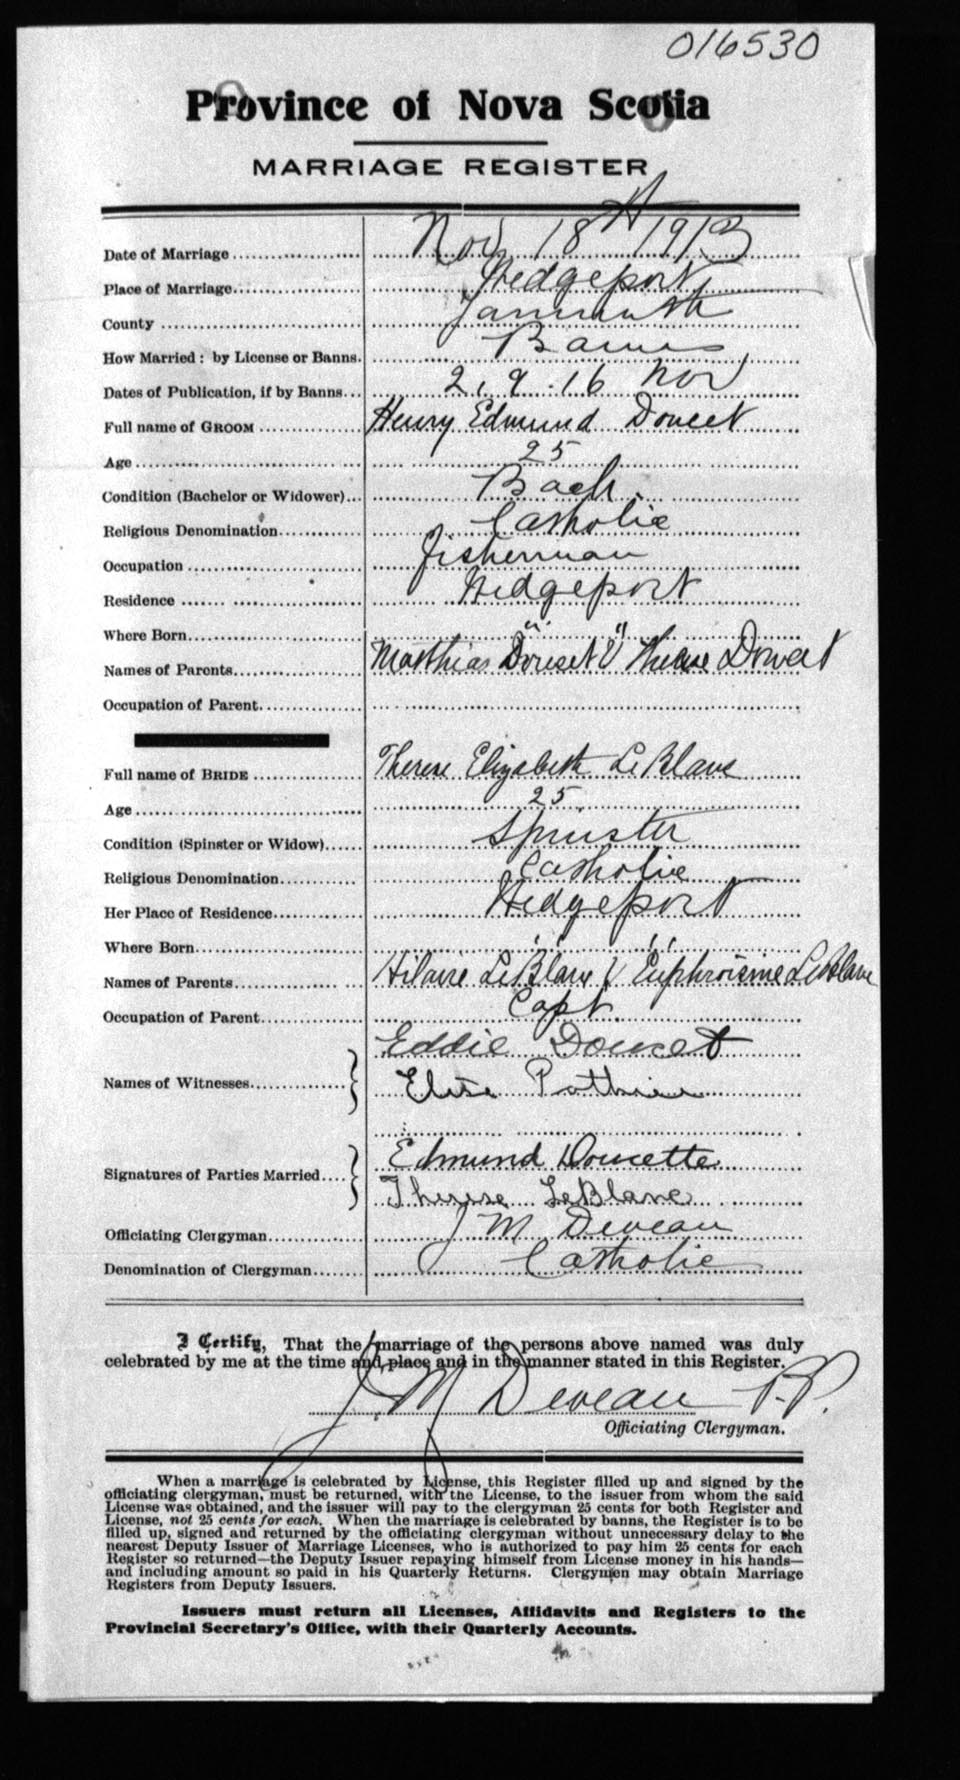 016530
Province of Nova Scotia
MARRIAGE REGISTER
Date of Marriage Nov 18th 1913
Place of Marriage Wedgeport
County Yarmouth
How Married: by License or Banns. Banns
Dates of Publication, if by Banns 2, 9. 16 Nov
Full name of GROOM Henry Edmund Doucet
Age 25
Condition (Bachelor or Widower) Bach.
Religious Denomination Catholic
Occupation Fisherman
Residence Wedgeport
Where Born " "
Names of Parents Matthias Doucet & Therese Doucet
Occupation of Parent
Full name of BRIDE Therese Elizabeth LeBlanc
Age 25
Condition (Spinster or Widow) Spinster
Religious Denomination Catholic
Her Place of Residence Wedgeport
Where Born " "
Names of Parents Hilaire LeBlanc & Euphroisine LeBlanc
Occupation of Parent Capt.
Names of Witnesses Eddie Doucet
Elise Pothier
Signatures of Parties Married Edmund Doucette
Therese LeBlanc
Officiating Clergyman J M Deveau
Denomination of Clergyman Catholic
I Certify, That the marriage of the persons above named was duly
celebrated by me at the time and place and in the manner stated in this Register.
J. M Deveau P.P.
Officiating Clergyman.
When a marriage is celebrated by License, this Register filled up and signed by the
officiating clergyman, must be returned, with the License, to the issuer from whom the said
License was obtained, and the issuer will pay to the clergyman 25 cents for both Register and
License, not 25 cents for each. When the marriage is celebrated by banns, the Register is to be
filled up, signed and returned by the officiating clergyman without unnecessary delay to the
nearest Deputy Issuer of Marriage Licenses, who is authorized to pay him 25 cents for each
Register so returned—the Deputy Issuer repaying himself from License money in his hands—
and including amount so paid in his Quarterly Returns. Clergymen may obtain Marriage
Registers from Deputy Issuers.
Issuers must return all Licenses, Affidavits and Registers to the
Provincial Secretary's Office, with their Quarterly Accounts.